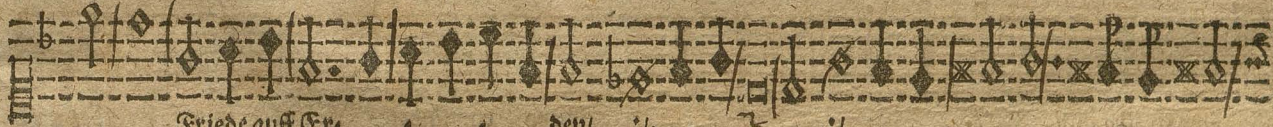 Friede auff Er⸗ ⸗ ⸗ den/ :/: :/: